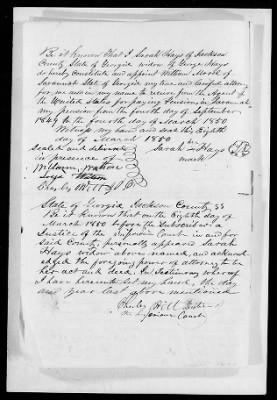 Be it known that I Sarah Hays of Jackson
County State of Georgia widow of George Hays
do hereby constitute and appoint William
Savannah State of Georgia my true and lawful attorney
for me and in my name to receive from the Agent of
the United States for paying Pensions in Savannah
my pension from the fourth day of September
1849 to the fourth day of March 1850
Witness my hand and seal this Eighth
day of March 1850
Sealed and delivered
in presence of
her
Sarah x Hays
mark
William
Charley Witt J I C
State of Georgia Jackson County SS
Be it known that on the Eighth day of
March 1850 before the Subscriber a
Justice of the Inferior Court in and for
said County personally appeared Sarah
Hays widow above named and acknowl
edged the foregoing power of attorney to be
her act and deed. In Testimony whereof
I have hereunto set my hand the day
and year last above mentioned
Charley Witt Justice
Inferior Court